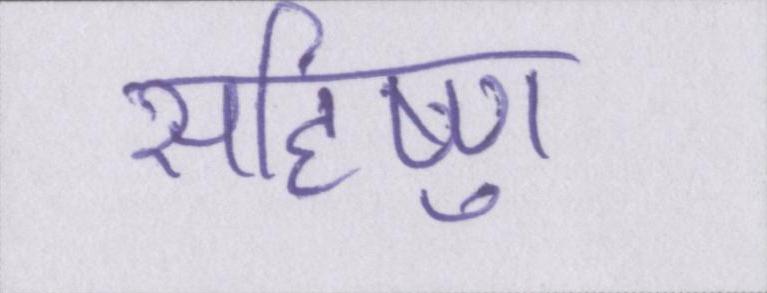 सहिंष्णु